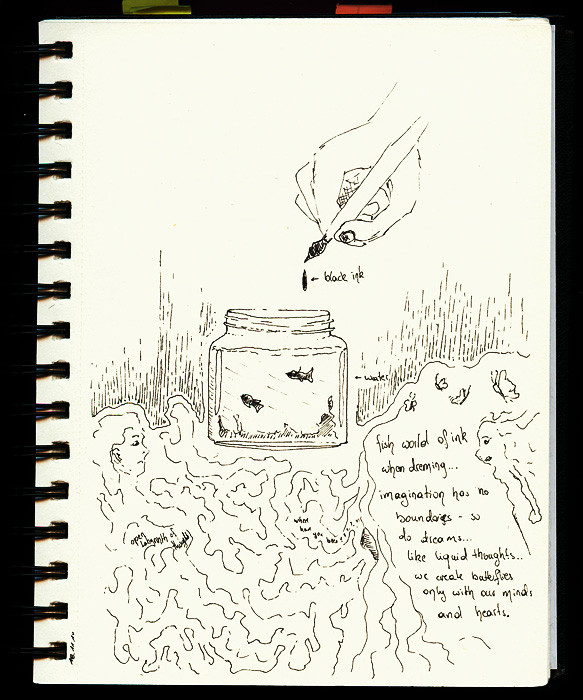 ← black ink
← water
fish world of ink
when dreming...
imagination has no
boundaries - so
do dreams...
like liquid thoughts..
we create butterflies
only with our minds
and hearts.
what
have
you
open
labyrinth of